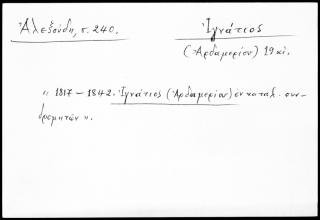 Ἀλεξούδη, τ. 240.
Ἰγνάτιος
(Ἀρδαμερίου) 19 αἰ.
" 1817 – 1842. Ἰγνάτιος (Ἀρδαμερίου) ἐν καταλ. συν-
δρομητῶν ".